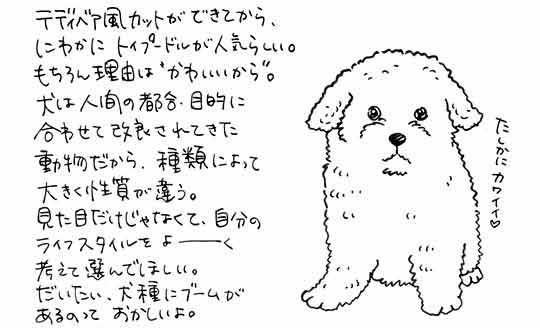 テディベア風カットができてから、
にわかにトイプードルが人気らしい。
もちろん理由は“かわいいから”。
犬は人間の都合・目的に
合わせて改良されてきた
動物だから、種類によって
大きく性質が違う。
見た目だけじゃなくて、自分の
ライフスタイルをよーーーく
考えて選んでほしい。
だいたい、犬種にブームが
あるのっておかしいよ。
たしかにカワイイ♡